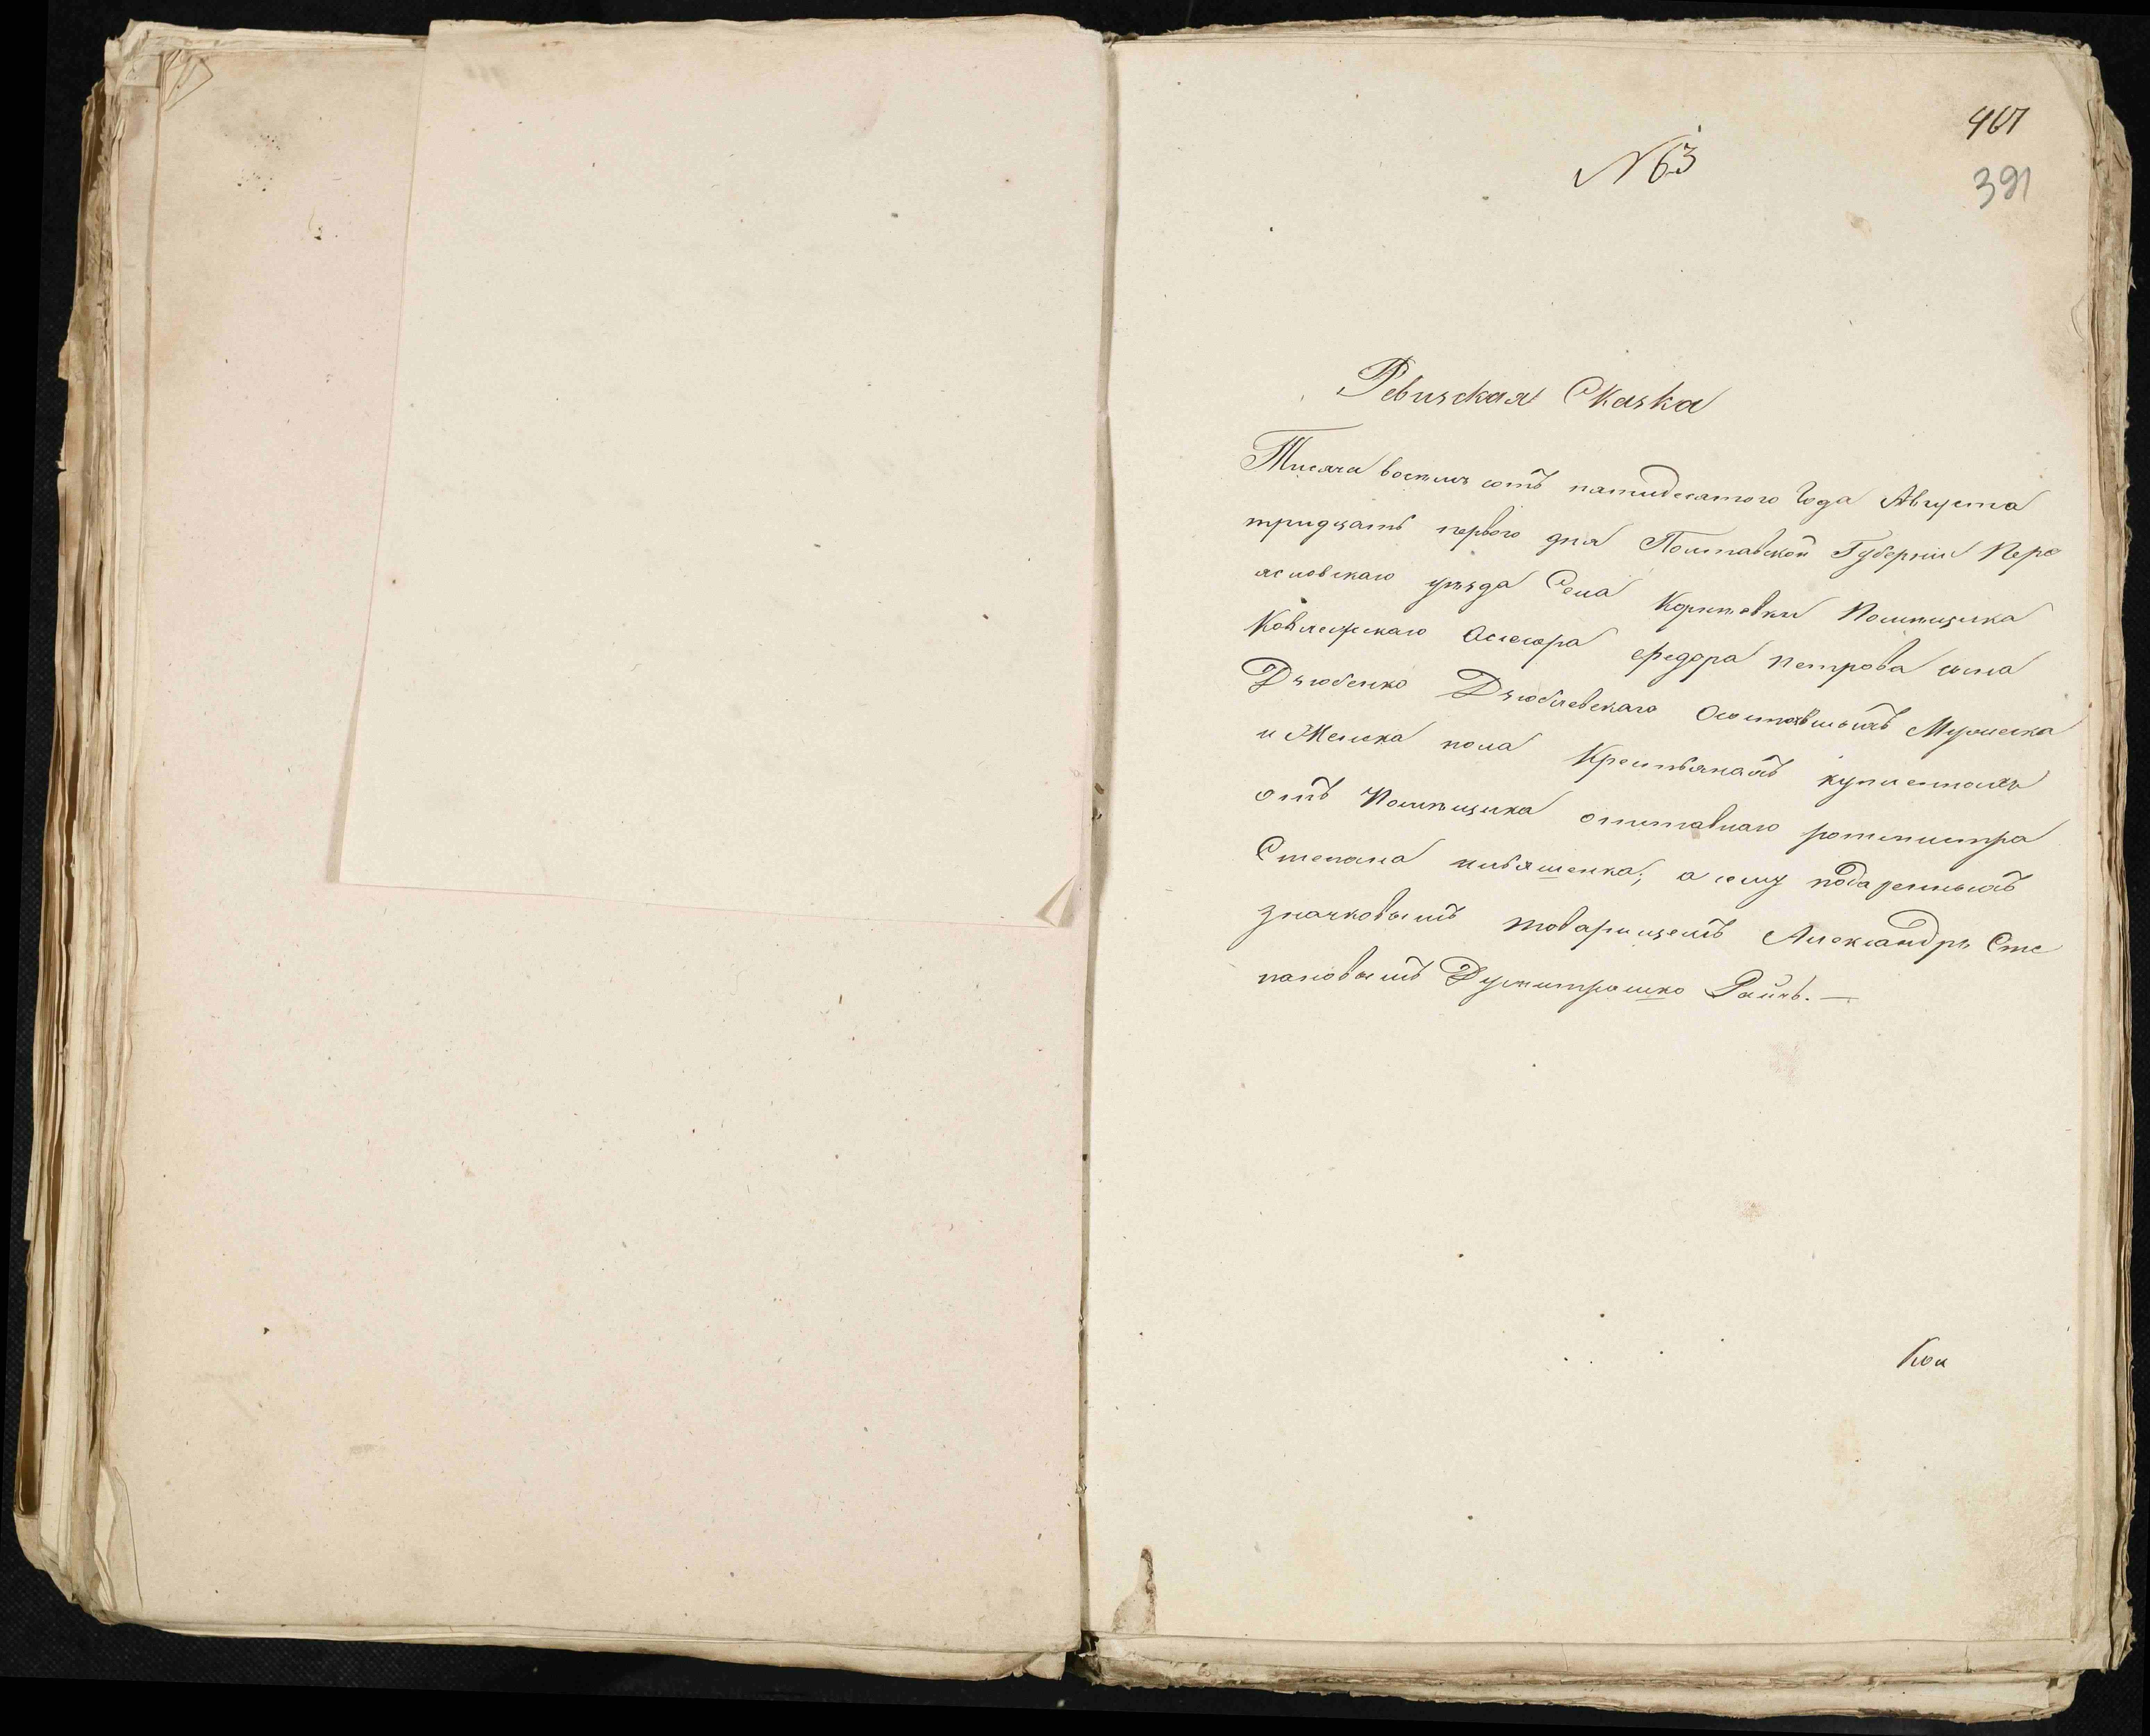 467
N 63
391
Ревизская Сказка
Тисяча восимъ сотъ пятидесятого Года Августа
тридцать первого дня Полтавской Губерніи Пере
ясловскаго уѣзда Села Помѣщика
Колежскаго Асесора Федора Петрова сина
Дзюбенко Дзюблевскаго Осостоявшыхъ Мужеска
и Женска пола Крестьянахъ купленныхъ
отъ Помѣщика отставнаго ротмистра
Степана а ему подаренныхъ
значковымъ товарищемъ Александръ Сте
пановымъ Думитрашко Райчь. —